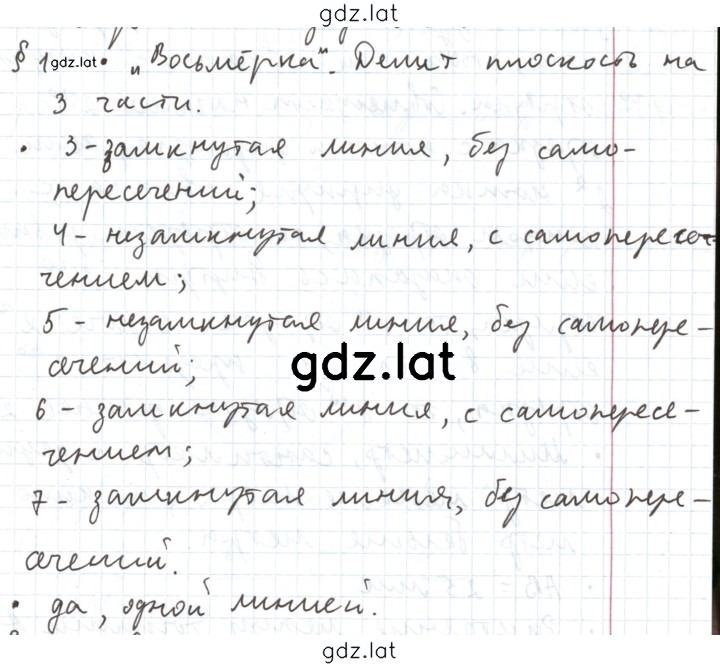 gdz.lat
§ 1 gdz.lat • "Восьмёрка". Делит плоскость на
3 части.
• 3 - замкнутая линия, без само-
пересечений;
4 - незамкнутая линия, с самопересе-
чением;
5 - незамкнутая линия, без самопере-
сечений;
gdz.lat
6 - замкнутая линия, с самопересе-
чением;
7 - замкнутая линия, без самопере-
сечений.
• да, одной линией.
gdz.lat